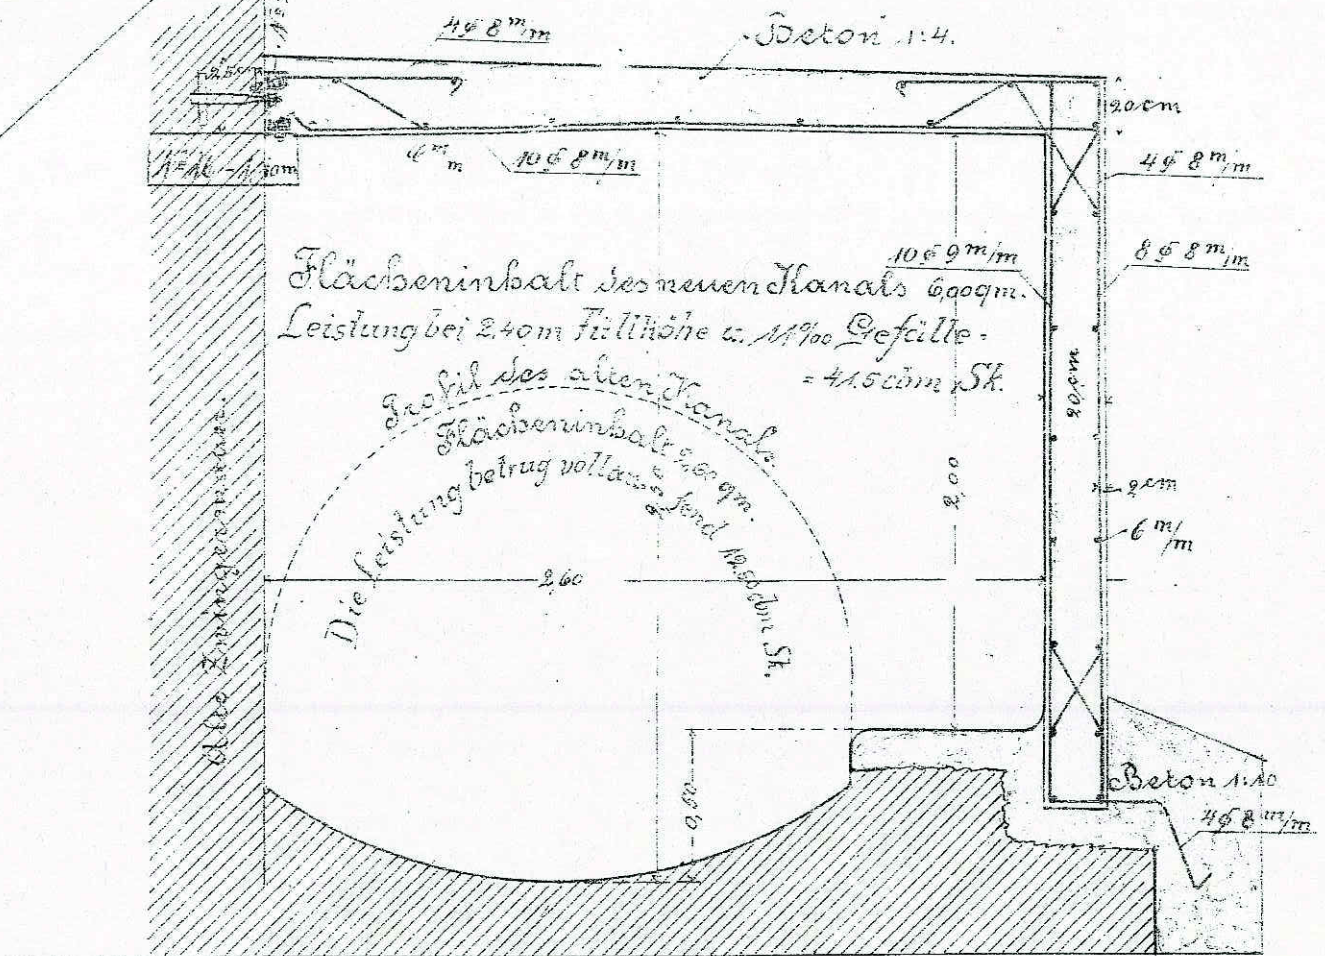 4∅8 m/m
Beton 1:4.
25
20cm
6 m/m
10∅8 m/m
4∅8 m/m
10∅9 m/m
8∅8 m/m
Flächeninhalt des neuen Kanals 6,00qm.
Leistung bei 2.40m Füllhöhe u. 11‰ Gefälle =
= 41.5 cbm Sk.
Profil des alten Kanals.
Flächeninhalt qm.
Die Leistung betrug voll laufend 12.50 cbm Sk.
20cm
2,00
2cm
6 m/m
2,60
Alte Zwingermauer.
0,50
Beton 1:10
4∅8 m/m